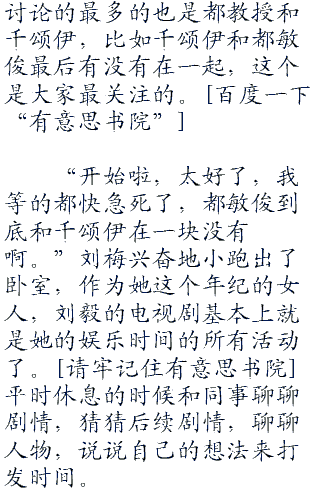 讨论的最多的也是都教授和
千颂伊，比如千颂伊和都敏
俊最后有没有在一起，这个
是大家最关注的。[百度一下
“有意思书院”]
“开始啦，太好了，我
等的都快急死了，都敏俊到
底和千颂伊在一块没有
啊。”刘梅兴奋地小跑出了
卧室，作为她这个年纪的女
人，刘毅的电视剧基本上就
是她的娱乐时间的所有活动
了。[请牢记住有意思书院]
平时休息的时候和同事聊聊
剧情，猜猜后续剧情，聊聊
人物，说说自己的想法来打
发时间。